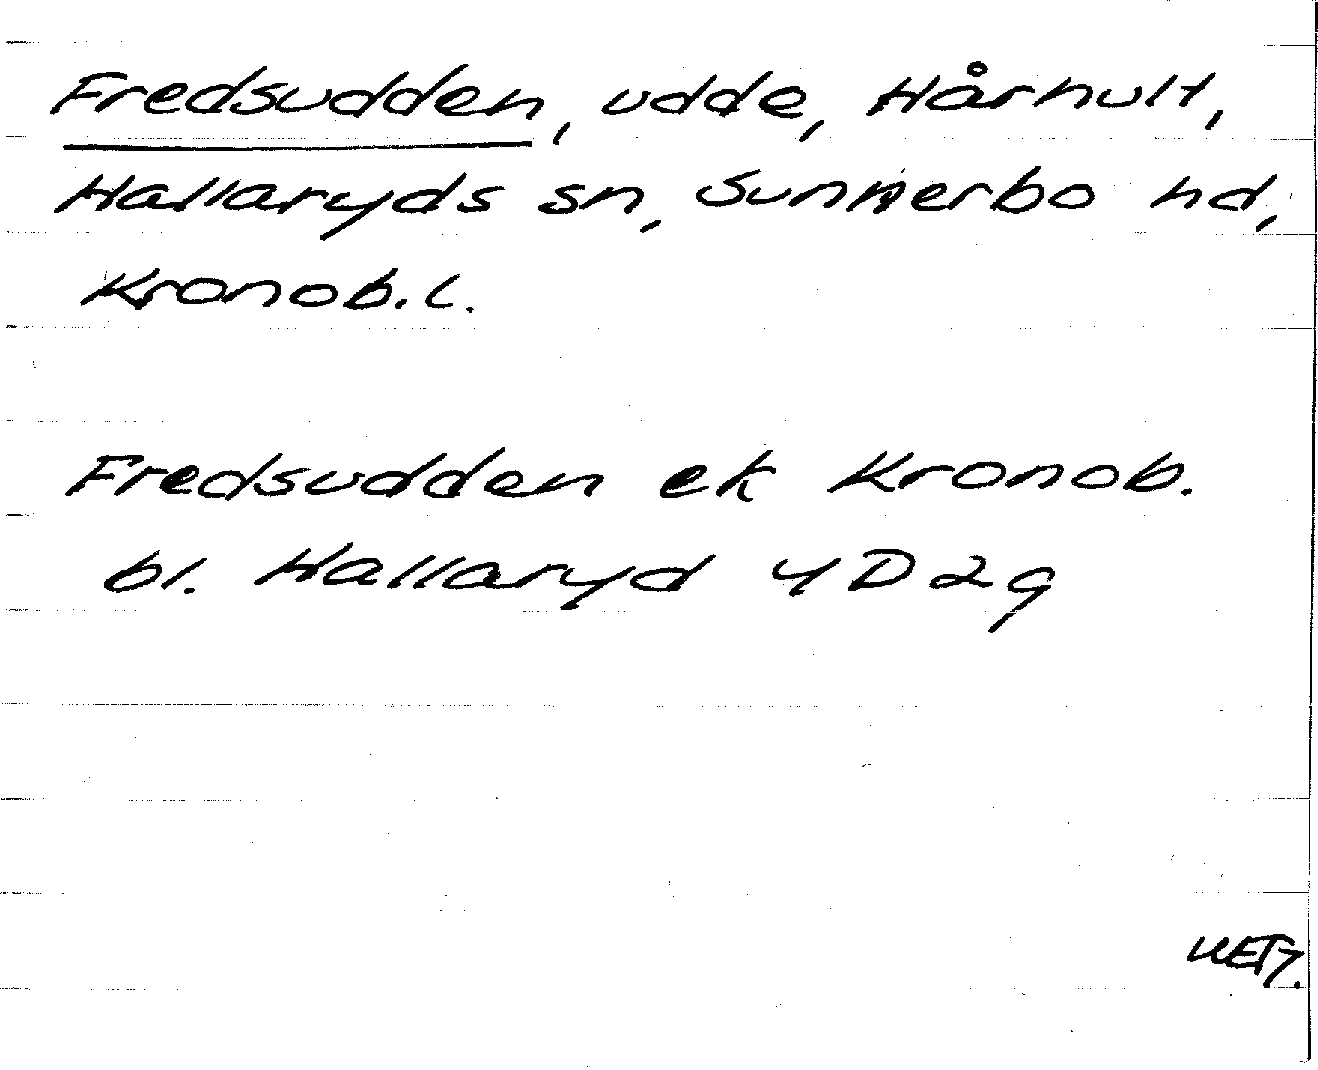 Fredsudden, udde, Hårhult,
Hallaryds sn, Sunnerbo hd,
Kronob. l.
Fredsudden ek Kronob.
bl. Hallaryd 4D2g